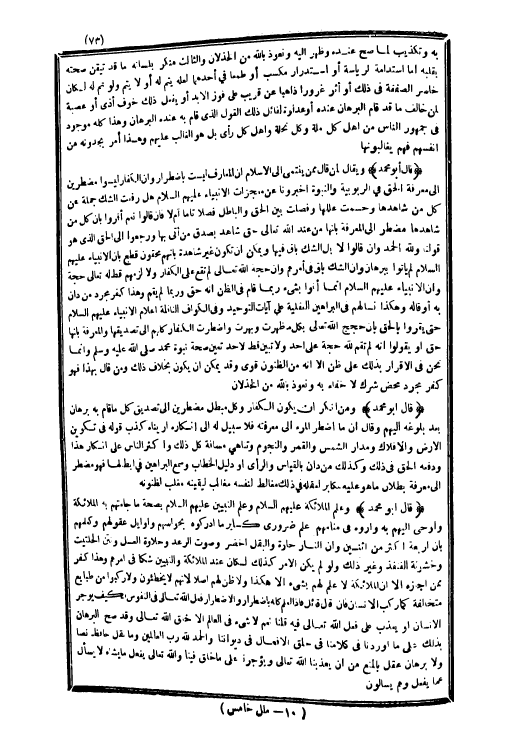 (٧٣)
به وتكذيب لما صح عنده وظهر اليه ونعوذ بالله من الخذلان والثالث منكر بلسانه ما قد تيقن صحته
بقلبه اما استدامة لرياسة أو استدرار مكسب أو طمعا في أحدهما لعله يتم له أو لا يتم ولو تم له لكان
خاسر الصفقة في ذلك أو أثر غرورا ذاهبا عن قريب على فوز الابد أو يفعل ذلك خوف أذى أو عصبة
لمن خالف ما قد قام البرهان عنده أو عداوة لقائل ذلك القول الذي قام به عنده البرهان وهذا كله موجود
في جمهور الناس من اهل كل ملة وكل نحلة واهل كل رأى بل هو الغالب عليهم وهذا أمر يجدونه من
انفسهم فهم يغالبونها
﴿قال أبو محمد﴾ ويقال لمن قال ممن ينتمى الى الاسلام ان المعارف ليست باضطرار وان الكفار ليسوا مضطرين
الى معرفة الحق في الربوبية والنبوة اخبرونا عن معجزات الانبياء عليهم السلام هل رفعت الشك جملة عن
كل من شاهدها وحسمت عللها وفصلت بين الحق والباطل فصلا تاما أم لا فان قالوا نعم أقروا بان كل من
شاهدها مضطر الى المعرفة بانها من عند الله تعالى حق شاهد بصدق من أتى بها ورجعوا الى الحق الذى هو
قولنا ولله الحمد وان قالوا لا بل الشك باق فيها ويمكن ان تكون غير شاهدة بانهم محقون قطع بان الانبياء عليهم
السلام لم يأتوا ببرهان وان الشك باق في أمرهم وان حجة الله تعالى لم تقع على الكفار ولا لزمهم قط له تعالى حجة
وان الانبياء عليهم السلام انما أتوا بشىء ربما قام فى الظن انه حق وربما لم يقم وهذا كفر مجرد من دان
به أو قاله وهكذا نسالهم فى البراهين العقلية على آيات التوحيد وفى الكواف الناقلة اعلام الانبياء عليهم السلام
حتى يقروا بالحق بان حجج الله تعالى بكل ذلك ظهرت وبهرت واضطرت الكفار كلهم الى تصديقها والمعرفة بانها
حق او يقولوا انه لم تقم لله حجة على احد ولا تبين قط لاحد تعين صحة نبوة محمد صلى الله عليه وسلم وانما
نحن فى الاقرار بذلك على ظن الا انه من الظنون قوى وقد يمكن ان يكون بخلاف ذلك ومن قال بهذا فهو
كفر مجرد محض شرك لا خفاء به ونعوذ بالله من الخذلان
﴿قال ابو محمد﴾ ومن انكر ان يكون الكفار وكل مبطل مضطرين الى تصديق كل ما قام به برهان
بعد بلوغه اليهم وقال ان ما اضطر المرء الى معرفته فلا سبيل له الى انكاره اريناه كذب قوله فى تكوين
الارض والافلاك ومدار الشمس والقمر والنجوم وتناهى مسافة كل ذلك واكثر الناس على انكار هذا
ودفعه الحق فى ذلك وكذلك من دان بالقياس والرأى او دليل الخطاب وسمع البراهين فى ابطالها فهو مضطر
الى معرفة بطلان ما هو عليه مكابر لعقله فى ذلك مغالط لنفسه مغالب ليقينه مغلب لظنونه
﴿قال ابو محمد﴾ وعلم الملائكة عليهم السلام وعلم النبيين عليهم السلام بصحة ما جاءتهم به الملائكة
واوحى اليهم به واروه فى منامهم علم ضرورى كسائر ما ادركوه بحواسهم واوايل عقولهم وكعلمهم
بان اربعة اكثر من اثنين وان النار حارة والبقل اخضر وصوت الرعد وحلاوة العسل ونتن الحلتيت
وخشونة القنفذ وغير ذلك ولو لم يكن الامر كذلك لكان عند الملائكة والنبيين شكا فى امرهم وهذا كفر
ممن اجازه الا ان الملائكة لا علم لهم بشىء الا هكذا ولا ظن لهم اصلا لانهم لا يخطئون ولا ركبوا من طبايع
متخالفة كما ركب الانسان فان قال قائل فاذ العلم كله باضطرار والاضطرار فعل الله تعالى فى النفوس فكيف يوجر
الانسان او يعذب على فعل الله تعالى فيه قلنا نعم لا شىء فى العالم الا خلق الله تعالى وقد صح البرهان
بذلك على ما اوردنا فى كلامنا فى خلق الافعال فى ديواننا والحمد لله رب العالمين وما نقل حافظ نصا
ولا برهان عقل بالمنع من ان يعذبنا الله تعالى ويؤجرنا على ما خلق فينا والله تعالى يفعل ما يشاء لا يسأل
عما يفعل وهم يسالون
(١٠ – ملل خامس)